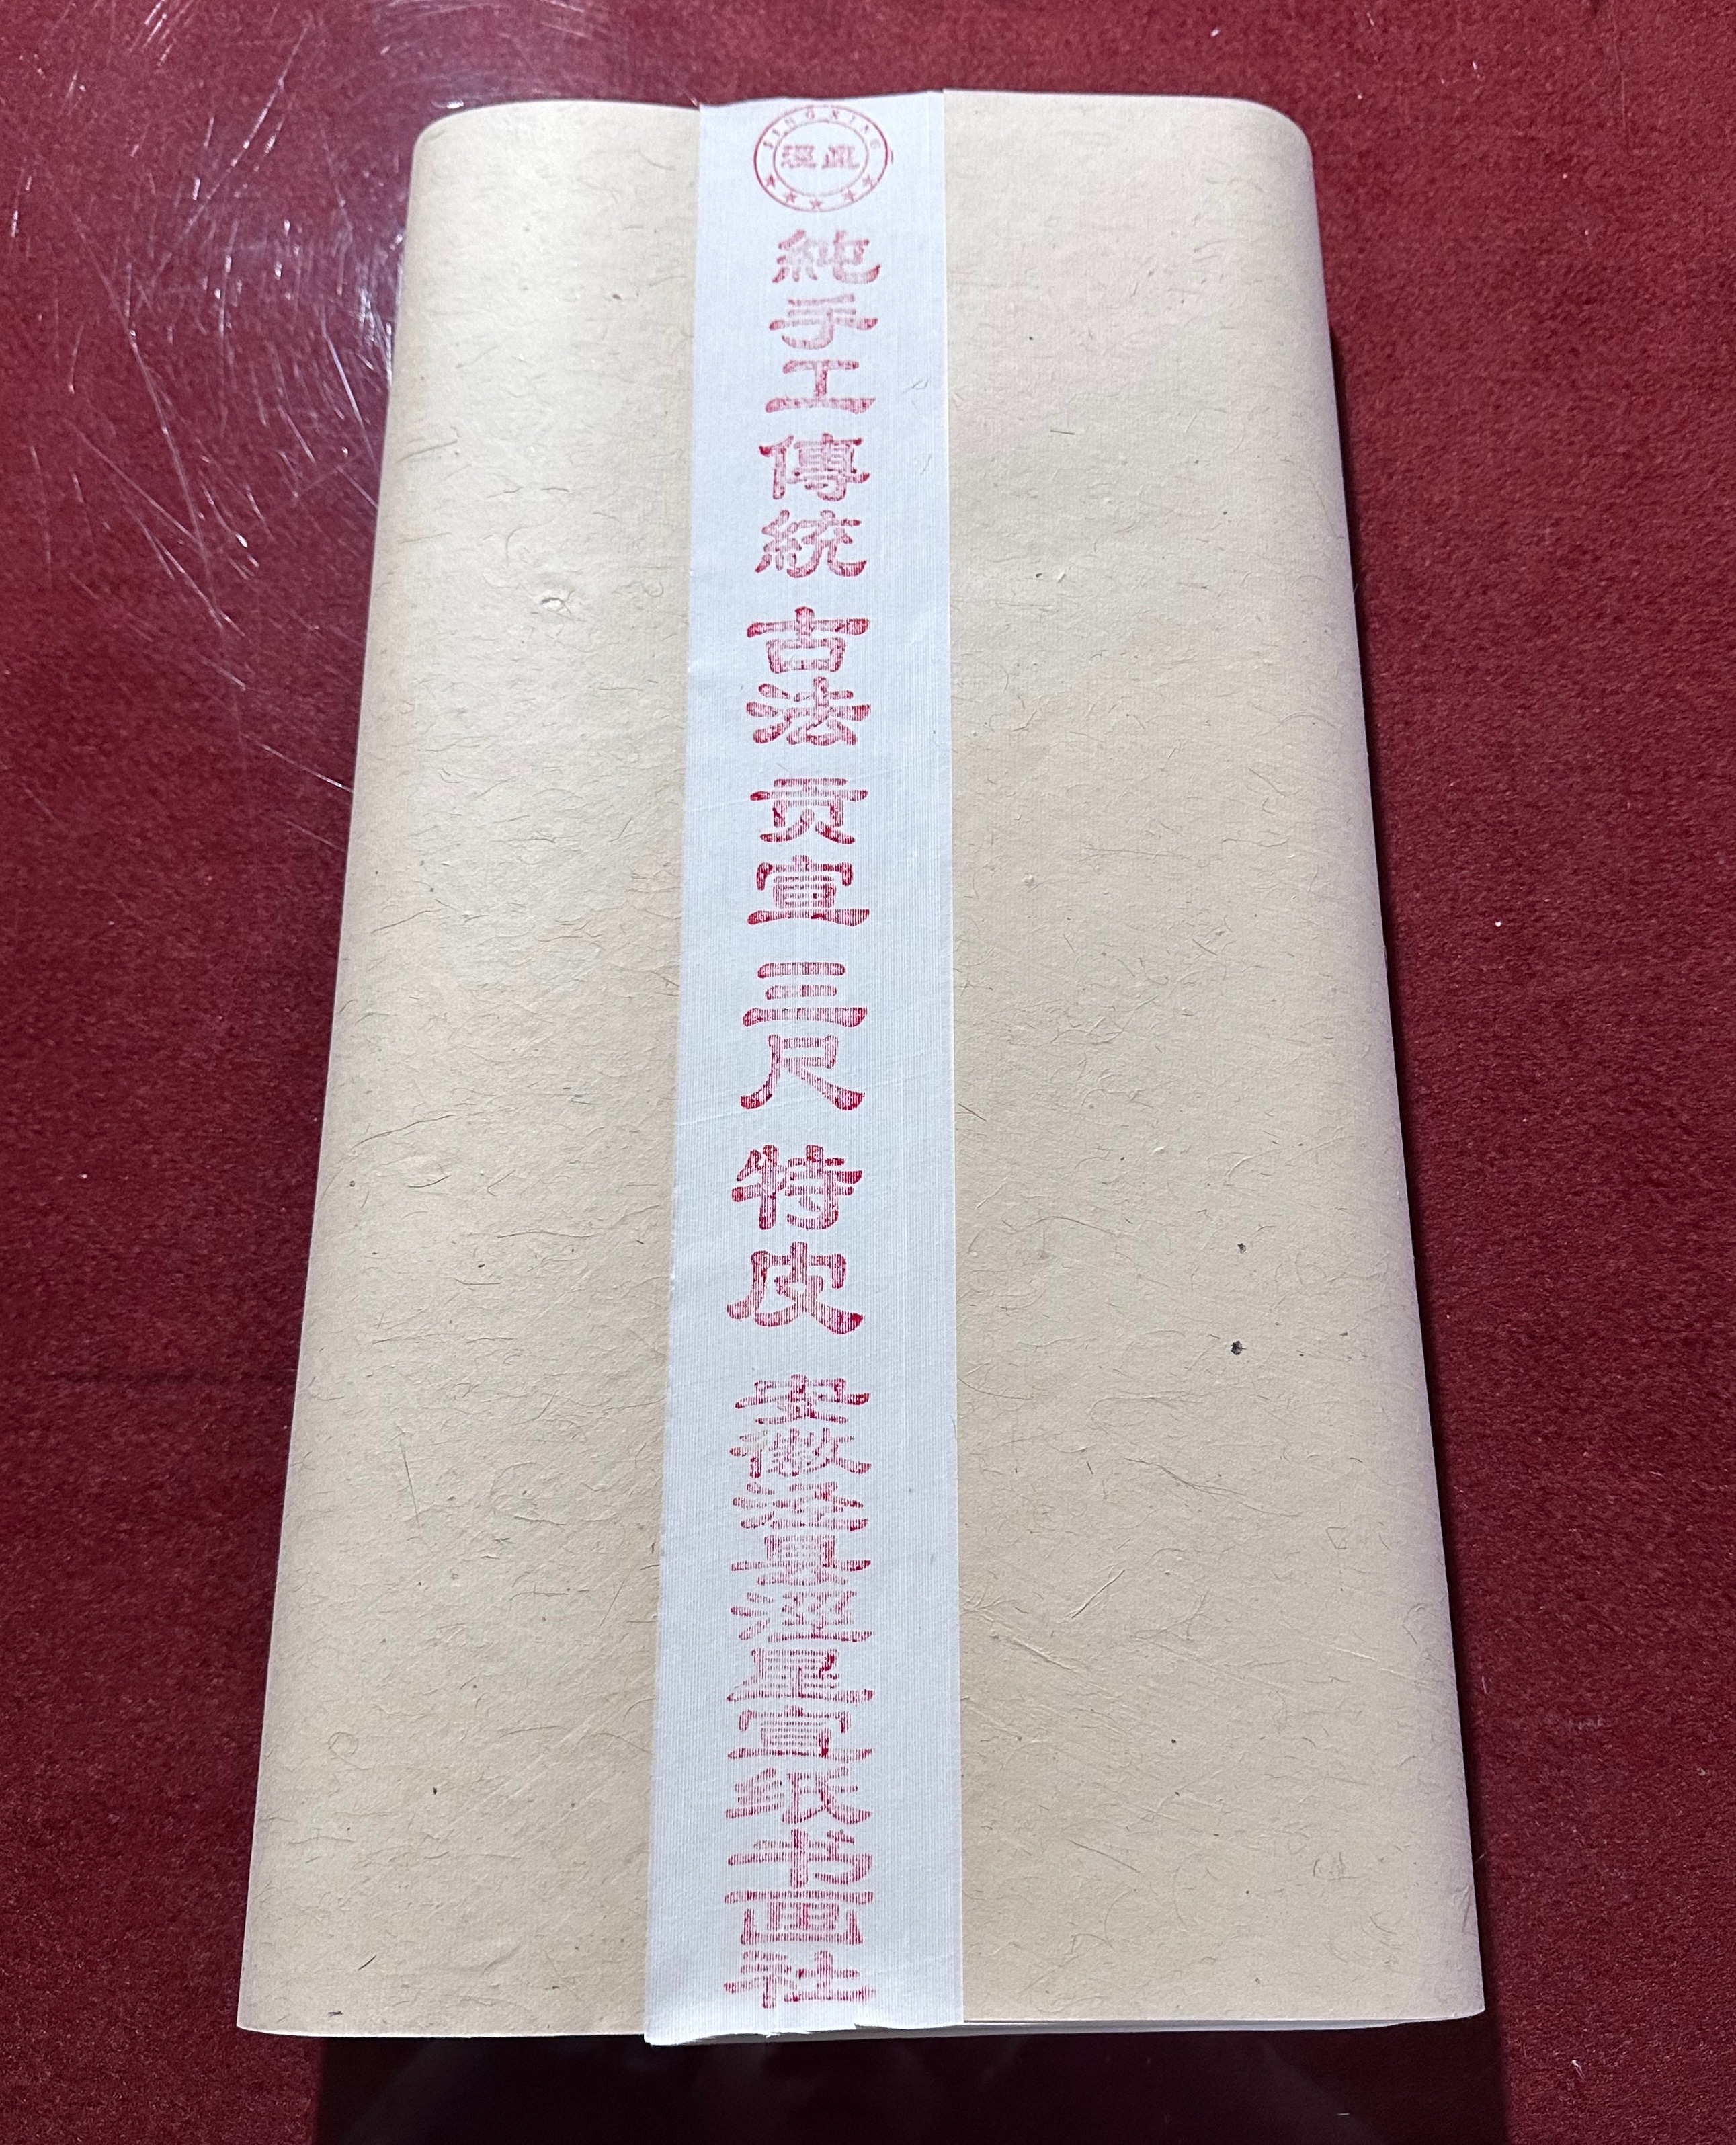 JING XING
涇星
純手工傳統 古法 贡宣 三尺 特皮 安徽泾县涇星宣纸书画社